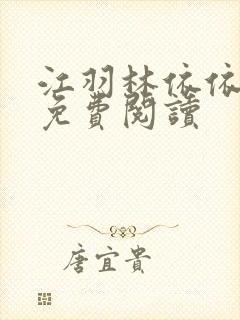 江羽林依依
免費閱讀
唐宜貴